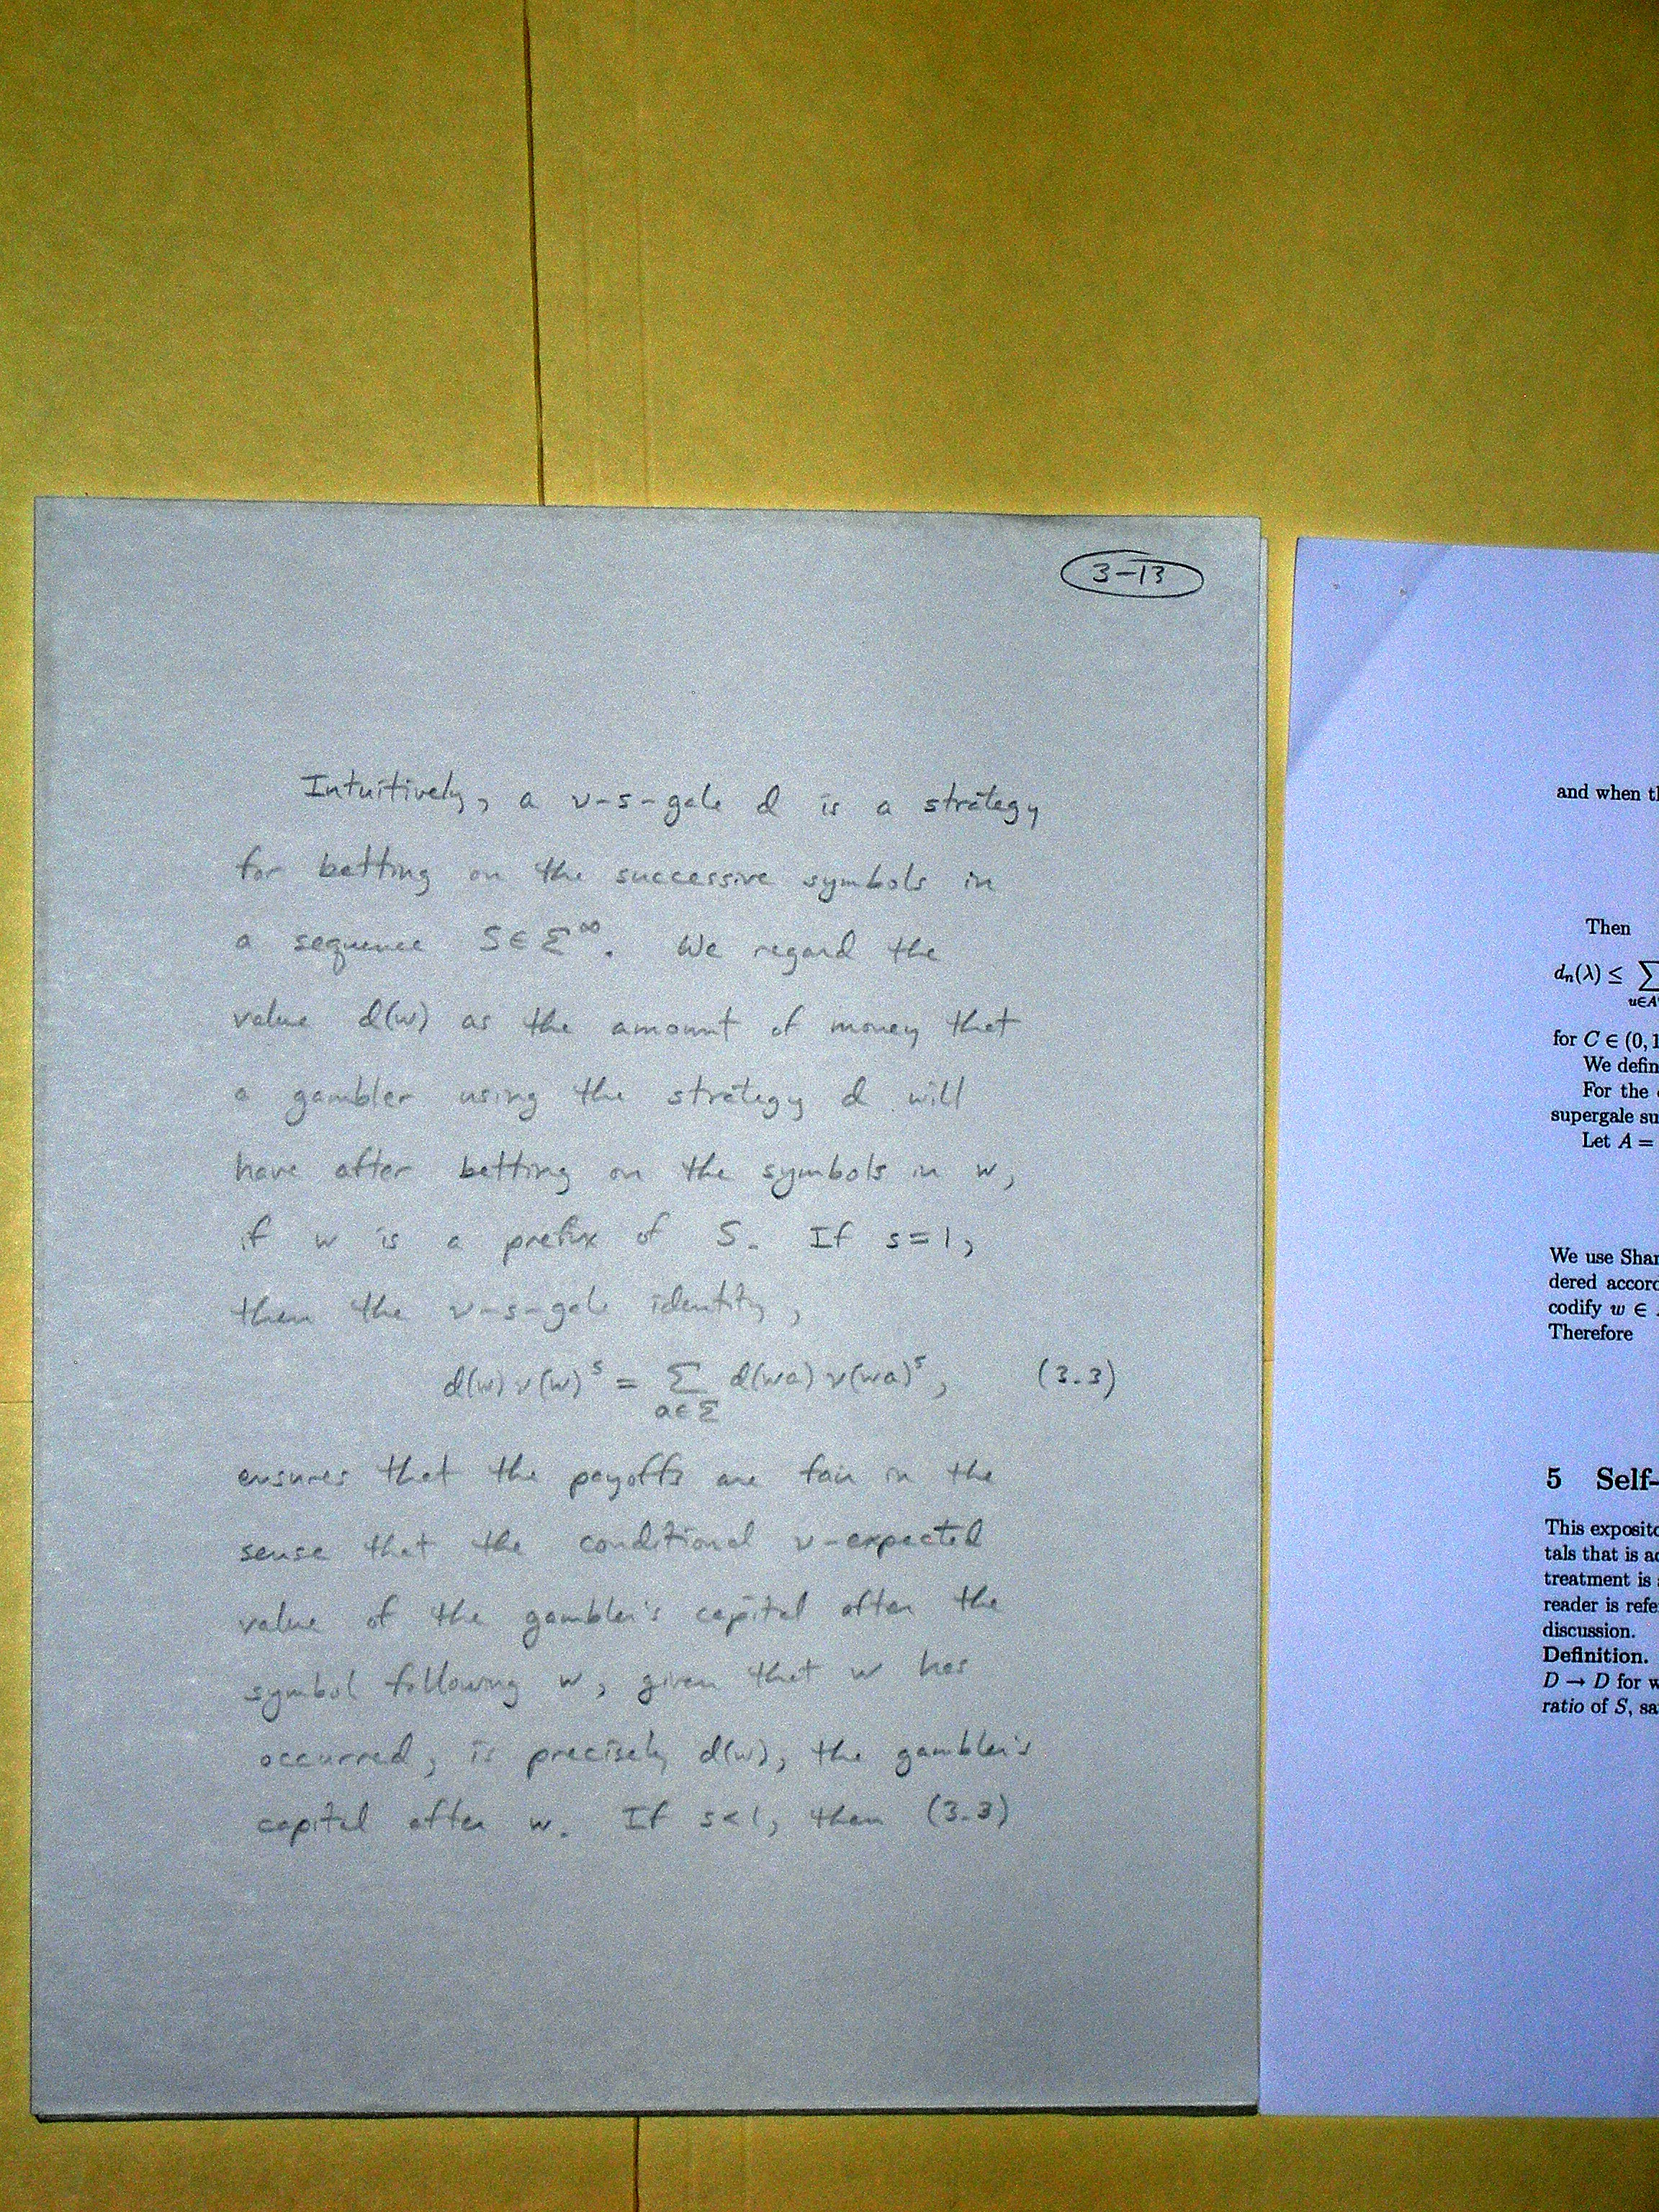 3-13
Intuitively, a ν-s-gale d is a strategy
for betting on the successive symbols in
a sequence S∈Σ^∞. We regard the
value d(w) as the amount of money that
a gambler using the strategy d will
have after betting on the symbols in w,
if w is a prefix of S. If s=1,
then the ν-s-gale identity,
d(w)ν(w)^s = ∑_{a∈Σ} d(wa)ν(wa)^s, (3.3)
ensures that the payoffs are fair in the
sense that the conditional ν-expected
value of the gambler's capital after the
symbol following w, given that w has
occurred, is precisely d(w), the gambler's
capital after w. If s<1, then (3.3)
and when
Then
dₙ(λ) ≤ ∑
u∈A
for C ∈ (0, 1
We defin
For the
supergale su
Let A =
We use Shar
dered accord
codify w ∈
Therefore
5 Self-
This exposito
tals that is ac
treatment is
reader is refe
discussion.
Definition.
D → D for w
ratio of S, sa